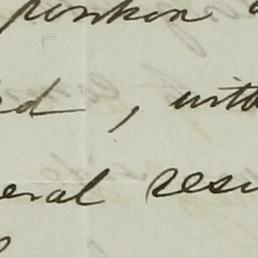 position
ed, with
eral resu